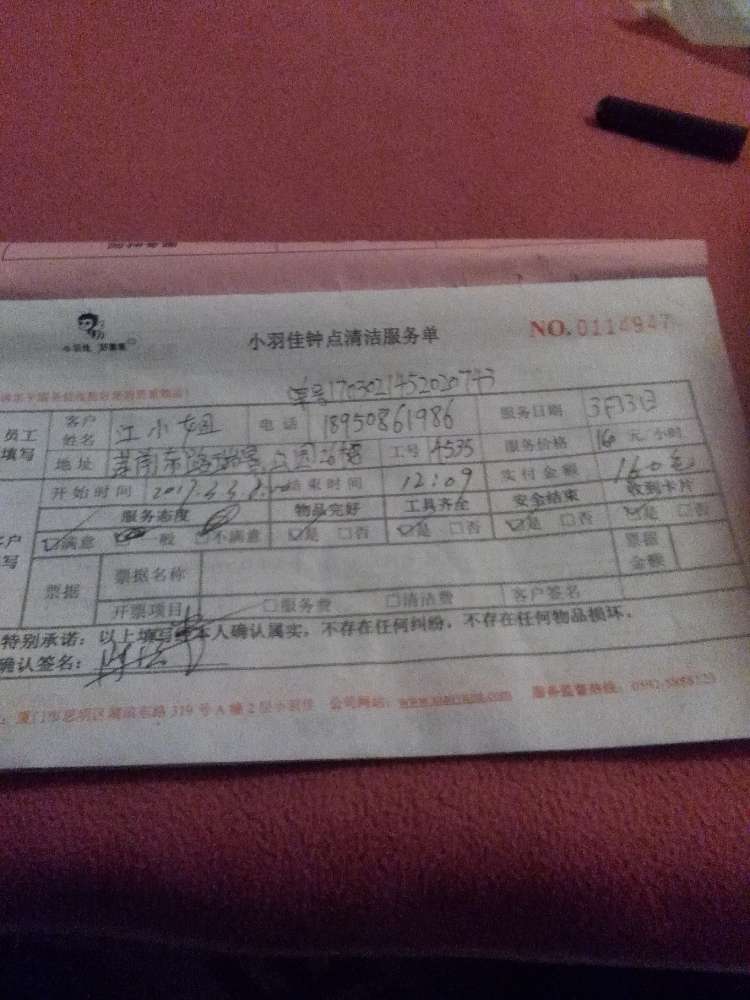 小羽佳钟点清洁服务单
NO. 0114947
单号1703021452020743
员工填写 客户姓名 江小姐 电话 18950861986 服务日期 3月3日
地址 工号 4535 服务价格 160 元/小时
开始时间 结束时间 12:09 实付金额 160元
服务态度 物品完好 工具齐全 安全结束 收到卡片
满意 一般 不满意 是 否 是 否 是 否 是 否
票据 票据名称 票据金额
开票项目 服务费 清洁费 客户签名
特别承诺：以上填写 本人确认属实，不存在任何纠纷，不存在任何物品损坏。
确认签名：
厦门市思明区湖滨南路 319 号 A 幢 2 层小羽佳 公司网站： 服务监督热线：